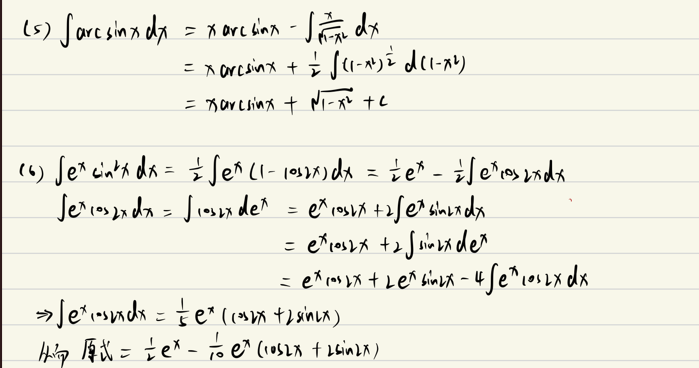 (5) ∫arcsinx dx = x arcsinx - ∫x/√(1-x²) dx
= x arcsinx + 1/2 ∫(1-x²)^(1/2) d(1-x²)
= x arcsinx + √(1-x²) + C
(6) ∫eˣ sin²x dx = 1/2 ∫eˣ (1-cos2x) dx = 1/2 eˣ - 1/2 ∫eˣ cos2x dx
∫eˣ cos2x dx = ∫cos2x deˣ = eˣ cos2x + 2∫eˣ sin2x dx
= eˣ cos2x + 2∫sin2x deˣ
= eˣ cos2x + 2eˣ sin2x - 4∫eˣ cos2x dx
⇒ ∫eˣ cos2x dx = 1/5 eˣ (cos2x + 2sin2x)
从而 原式 = 1/2 eˣ - 1/10 eˣ (cos2x + 2sin2x)